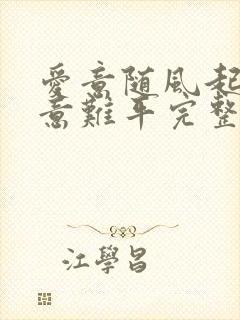 愛意随风起
意難平完整
江學昌